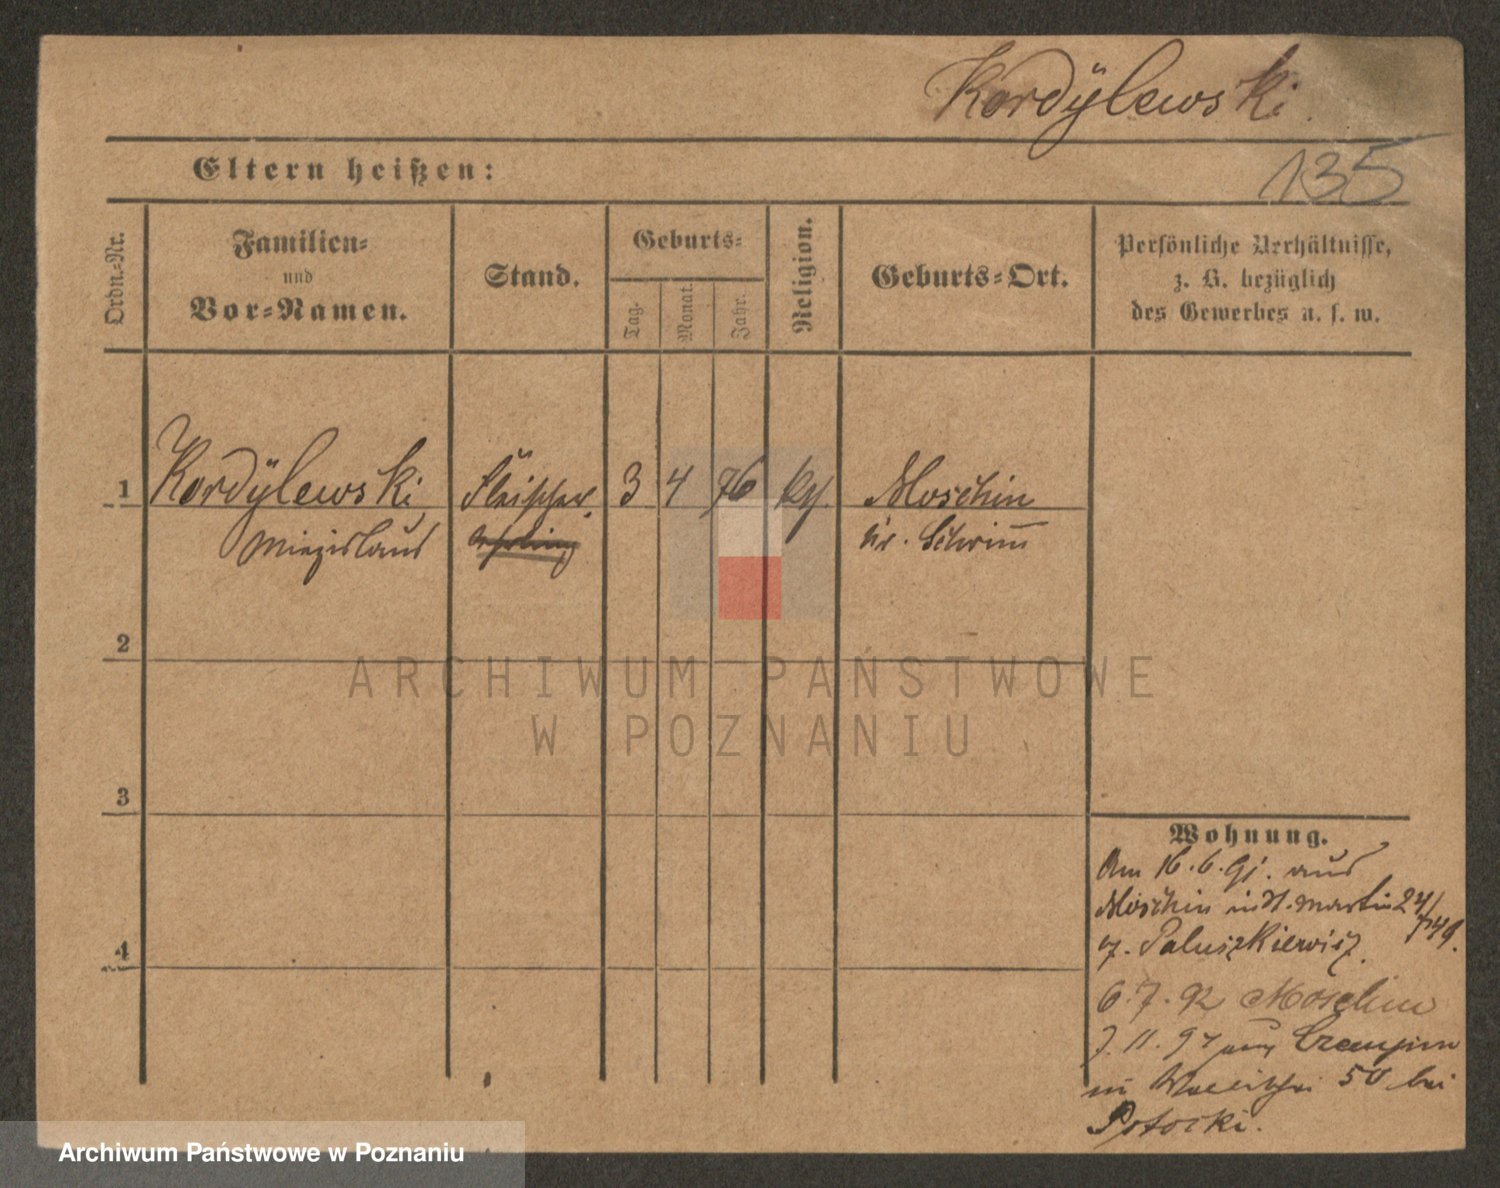 Kordÿlewski
135
Eltern heißen:
Ordn.-Nr.
Familien-
und
Vor-Namen.
Stand.
Geburts-
Tag.
Monat.
Jahr.
Religion.
Geburts-Ort.
Persönliche Verhältnisse,
z. B. bezüglich
des Gewerbes u. s. w.
1 Kordÿlewski Fleischer 3 4 76 kth. Moschin
Miezislaus Kr. Schrimm
2
3
4
Wohnung.
Am 16.6.91. aus
Moschin in St. Martin 24/
749.
Paluszkiewicz.
6.7.92 Moschin
7.11.97
50 bei
Potocki.
ARCHIWUM PAŃSTWOWE
W POZNANIU
Archiwum Państwowe w Poznaniu